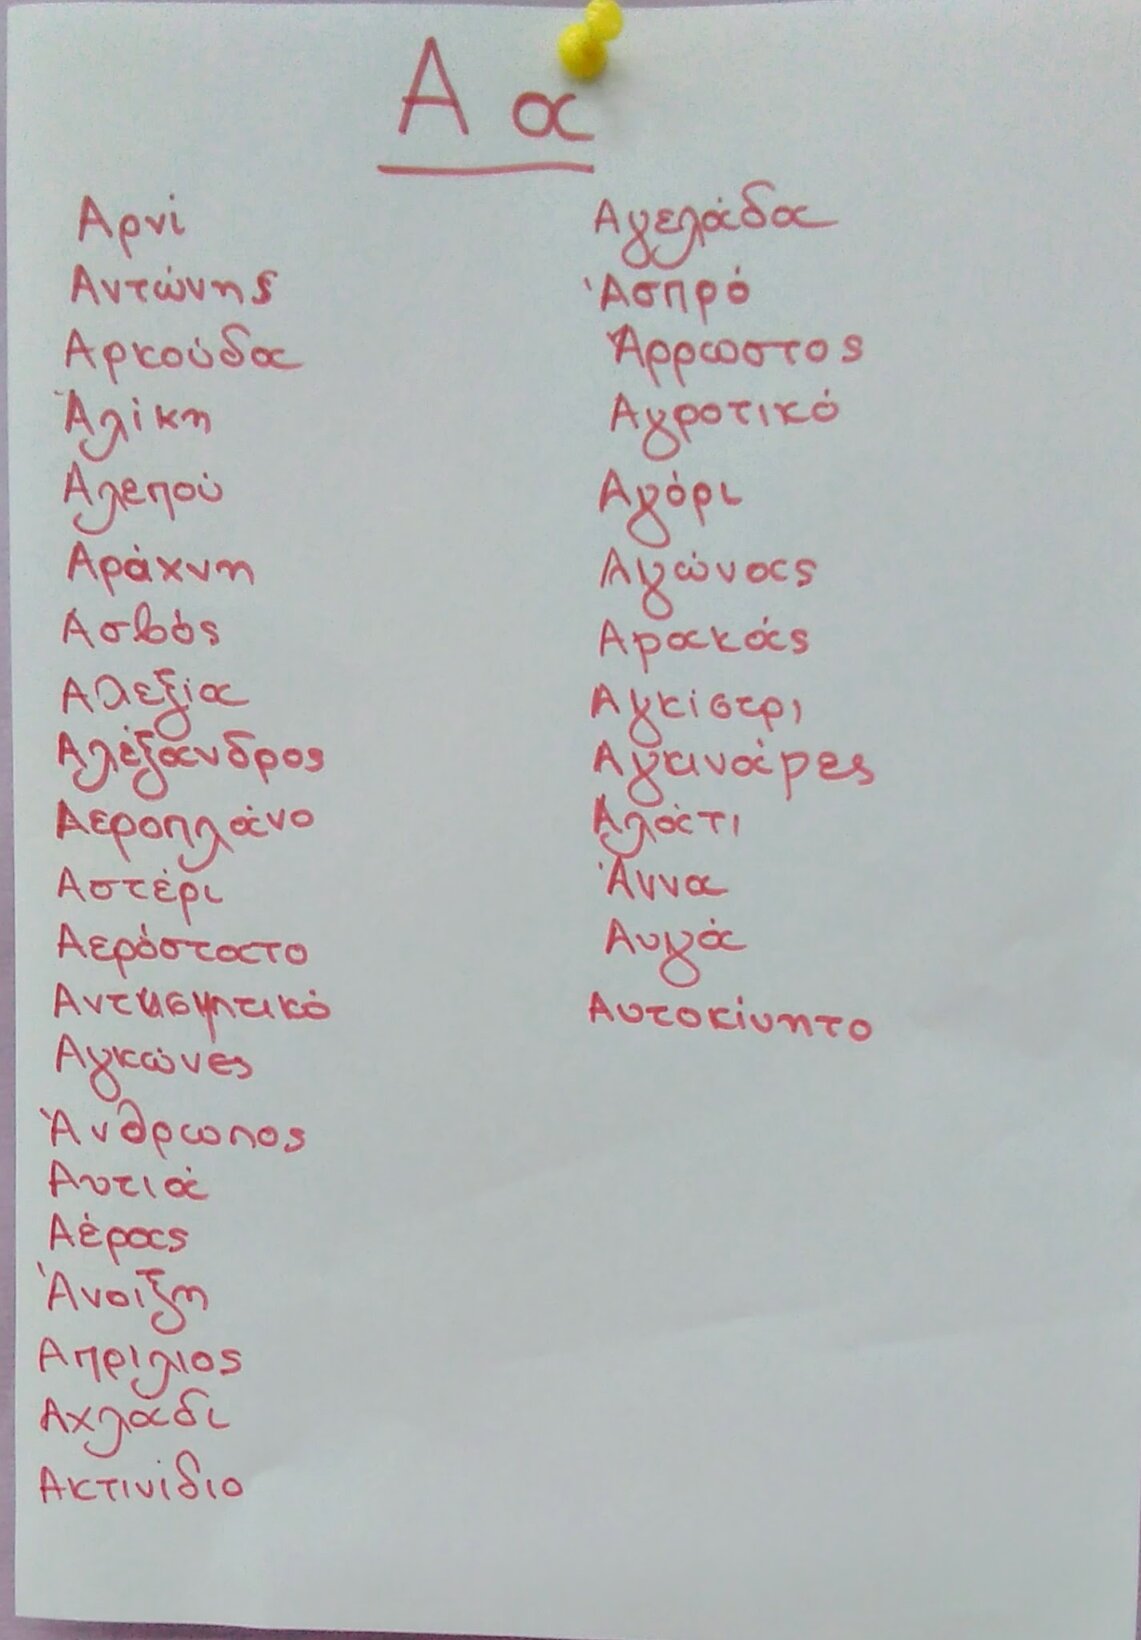 Α α
Αρνί
Αντώνης
Αρκούδα
Άλίκη
Αλεπού
Αράχνη
Ασβός
Αλεξία
Αλέξανδρος
Αεροπλάνο
Αστέρι
Αερόστατο
Αντισηπτικό
Αγκώνες
Άνθρωπος
Αυτιά
Αέρας
Άνοιξη
Απρίλιος
Αχλάδι
Ακτινίδιο
Αγελάδα
Άσπρό
Άρρωστος
Αγροτικό
Αγόρι
Αγώνας
Αρακάς
Αγκίστρι
Αγκινάρες
Αλάτι
Άννα
Αυγά
Αυτοκίνητο